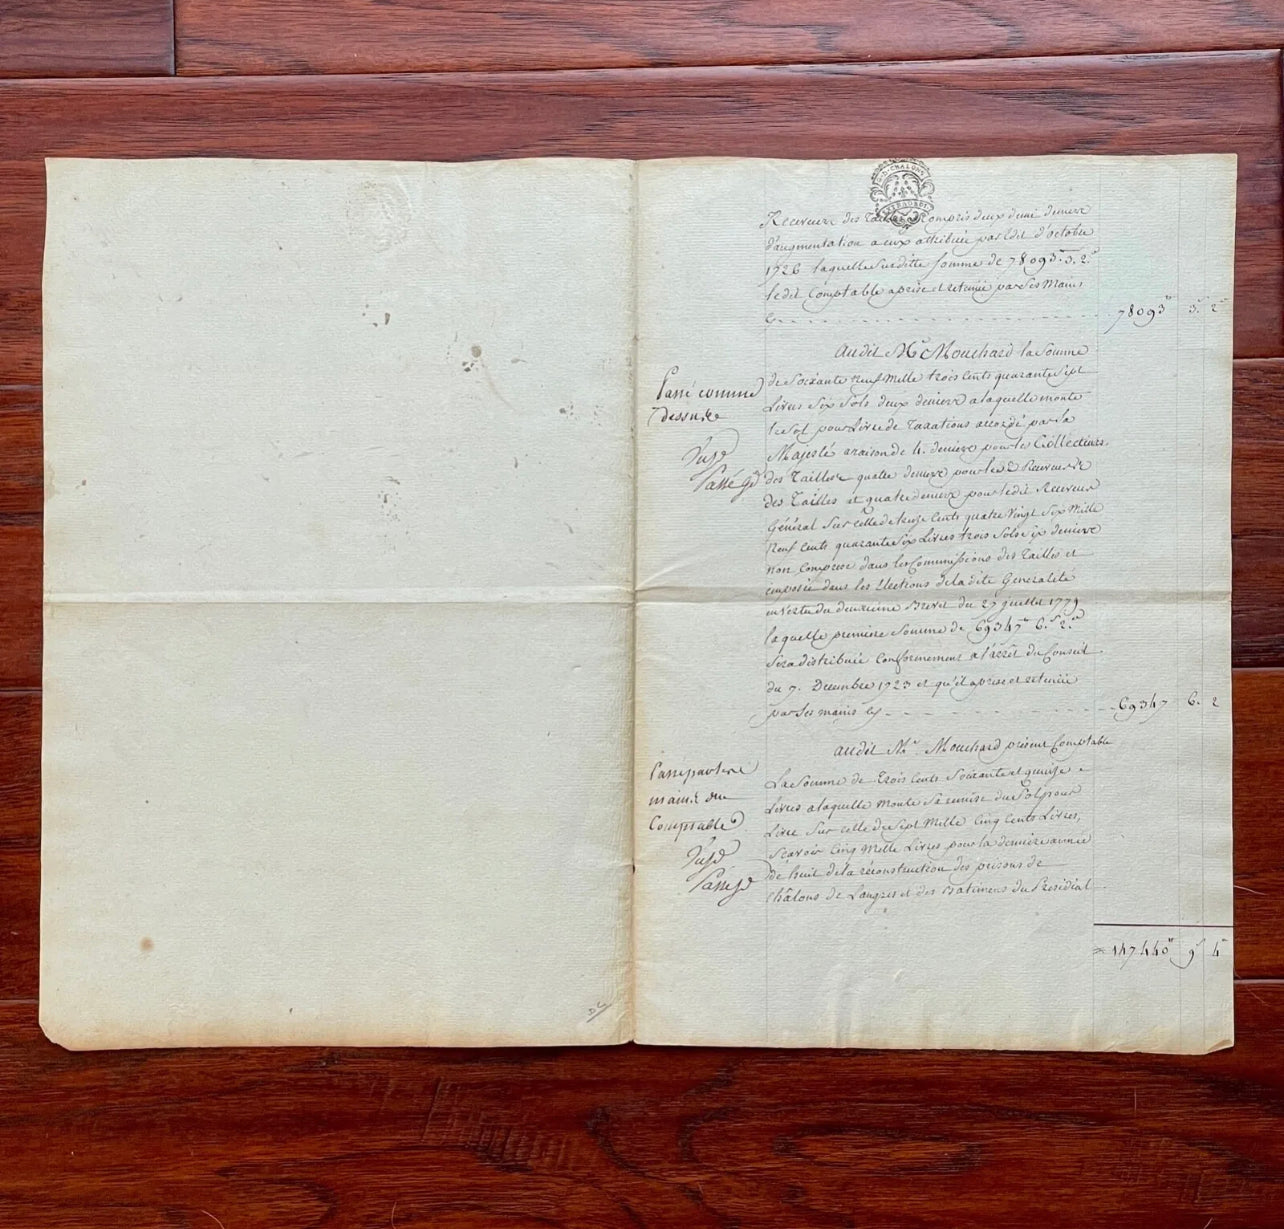 G. D. CHALONS
Receveurs des Tailles y Compris deux demi deniers
d'augmentation a eux attribués par Edit d'octobre
1726 laquelle Susditte somme de 78093.# 3. 2.d
ledit Comptable a prise et retenüe par Ses Mains
cy 78093# 3.s 2d
Audit Mr Mouchard la Somme
Passé comme
dessus
de Soixante neuf Mille trois cents quarante Sept
Livres Six Sols deux deniers a laquelle monte
le Sol pour Livre de Taxations accordé par Sa
Majesté a raison de 4. deniers pour les Collecteurs,
Passé
des Tailles quatre deniers pour les Receveurs
des Tailles et quatre deniers pour ledit Receveur
Général Sur celle de treize Cents quatre Vingt Six Mille
Neuf Cents quarante Six Livres trois Sols Six deniers
non Comprise dans les Commissions des Tailles et
imposée dans les Elections de la dite Generalité
en Vertu du deuxieme Brevet du 27 juillet 1779
laquelle premiere Somme de 69347# 6.s 2.d
Sera distribuée Conformement a l'arrêt du Conseil
du 7. Decembre 1723 et qu'il a prise et retenüe
par Ses mains cy 69347 6. 2
audit Mr. Mouchard présent Comptable
Passé par les
mains du
Comptable
La Somme de Trois Cents Soixante et quinze
Livres a laquelle monte Sa remise du Sol pour
Livre Sur celle de Sept Mille Cinq Cents Livres,
Sçavoir Cinq Mille Livres pour la derniere année
Passé
de huit de la réconstruction des prisons de
Châlons de Langres et des Batimens du Présidial
147440# 9s 4d